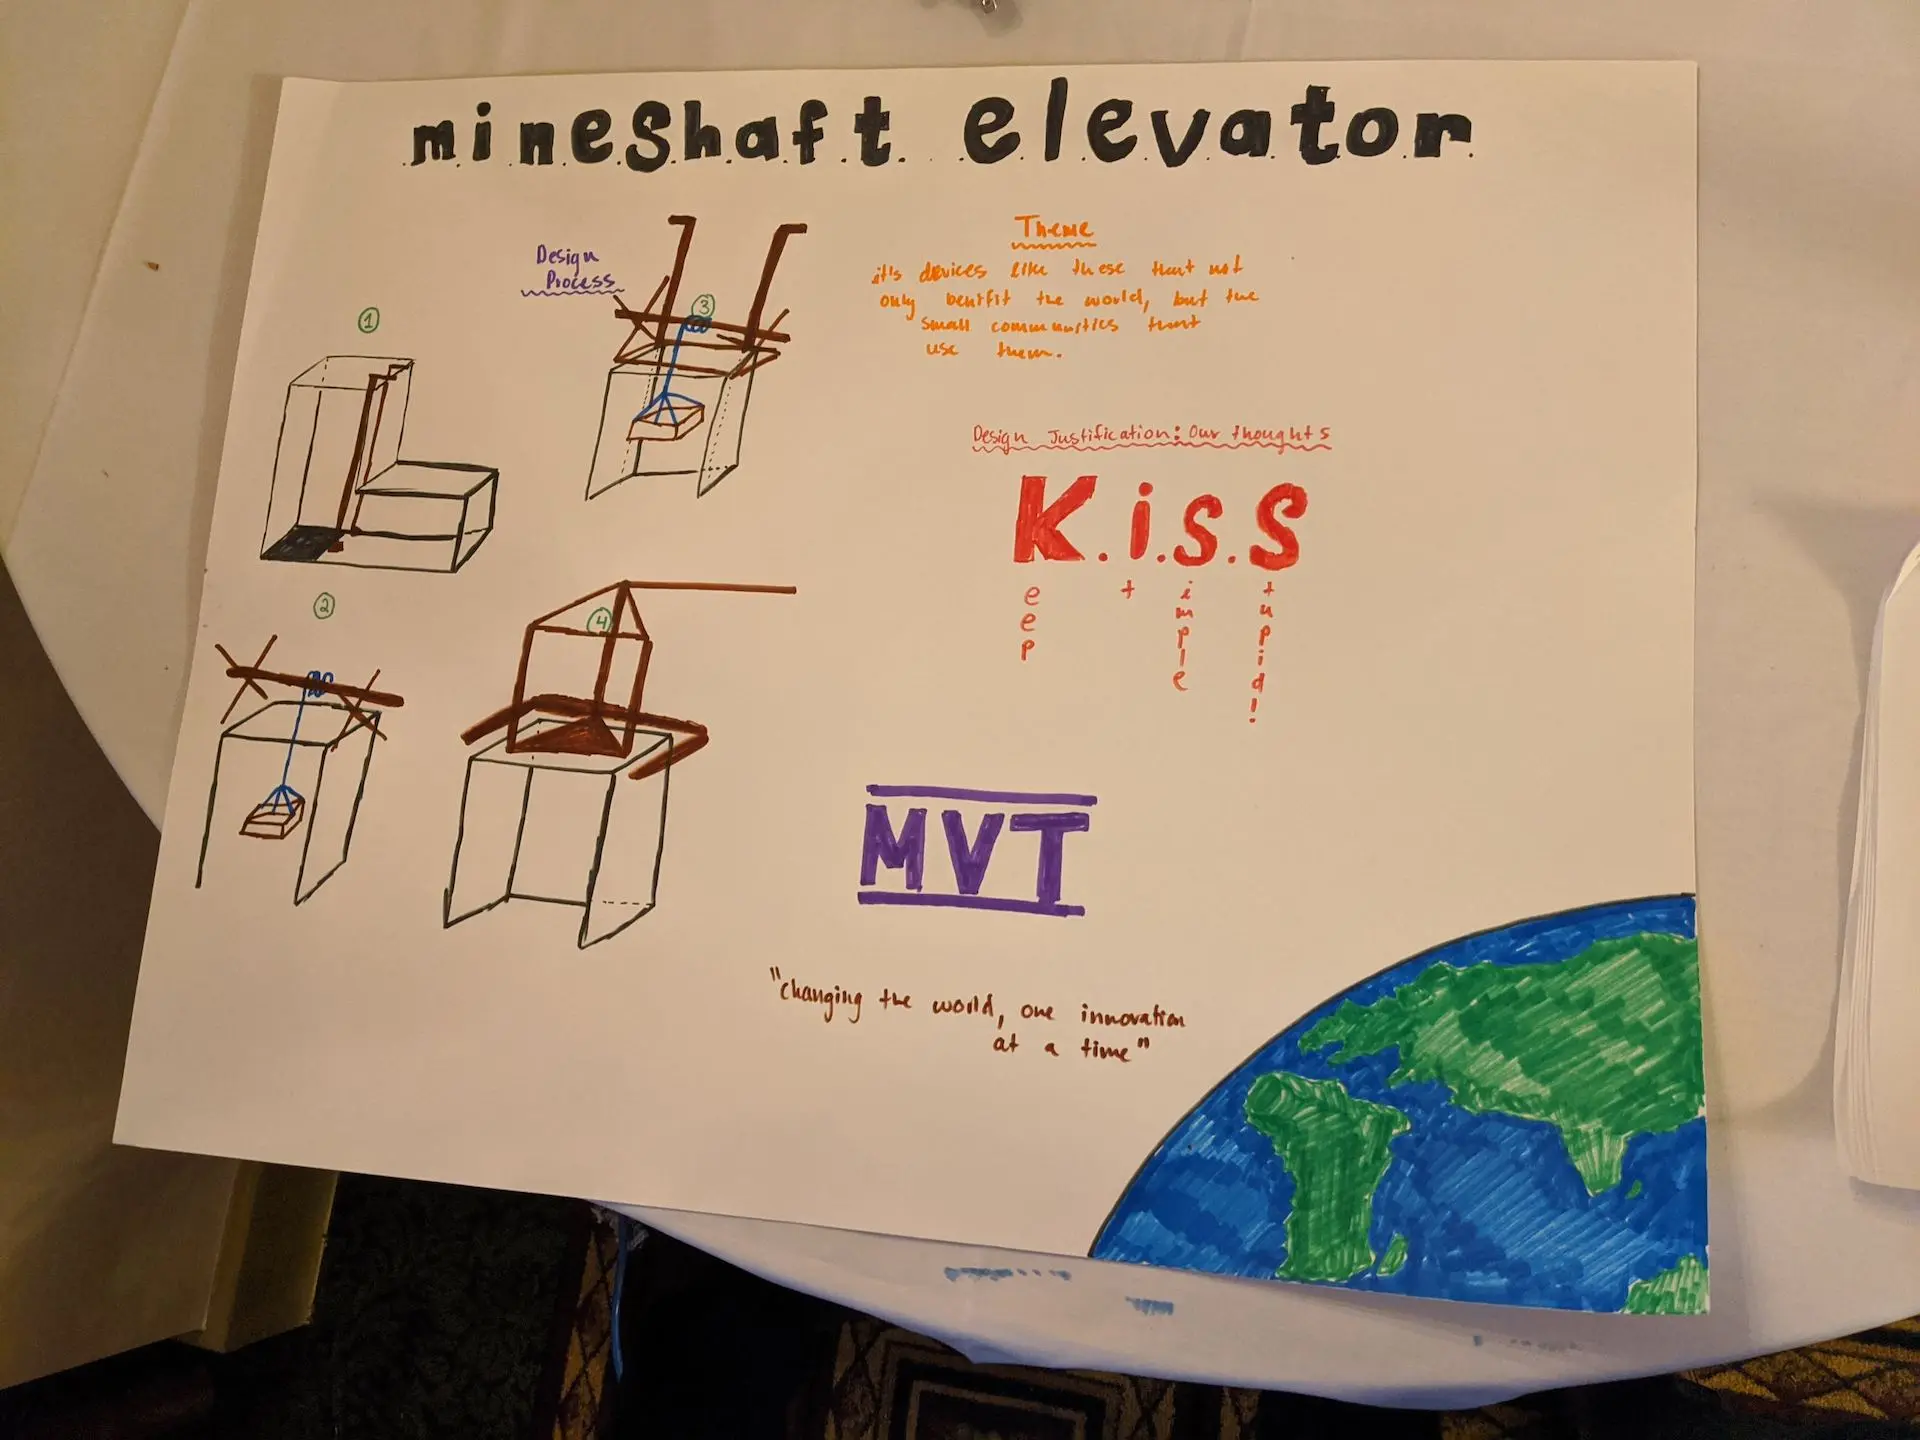 mineshaft elevator
Design
Process
1
2
3
4
Theme
it's devices like these that not
only benifit the world, but the
small communities that
use them.
Design Justification: Our thoughts
K.i.S.S
eep
t
imple
tupid!
MVT
"changing the world, one innovation
at a time"